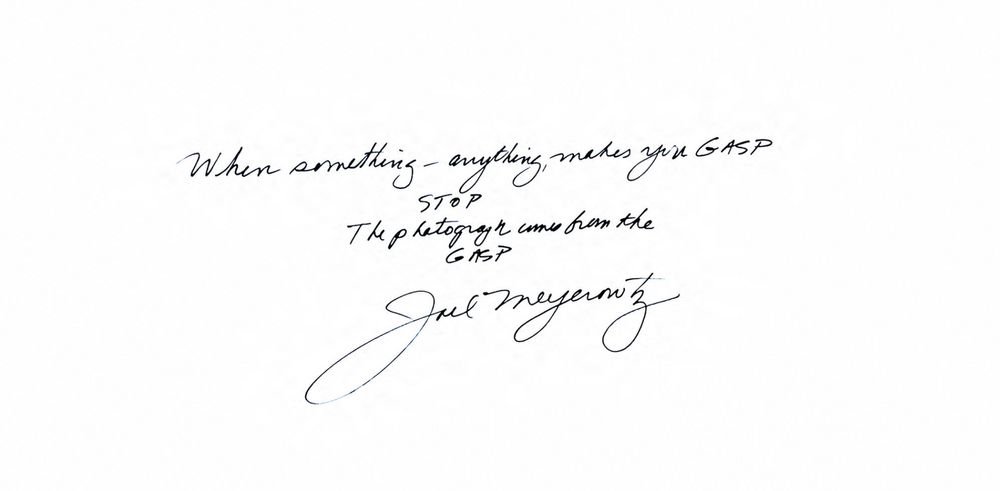 When something – anything, makes you GASP
STOP
The photograph comes from the
GASP
Joel Meyerowitz